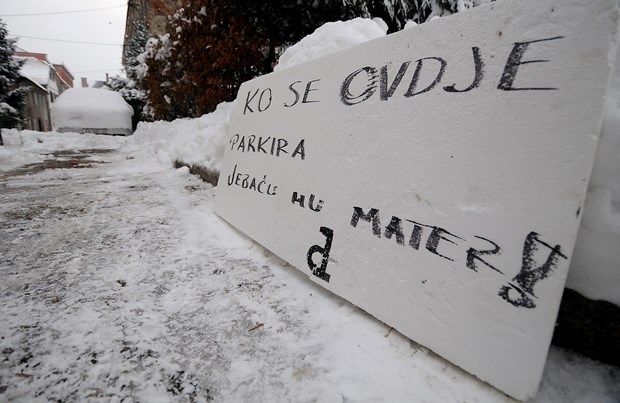 KO SE OVDJE
PARKIRA
JEBAĆU MU MATER!
d